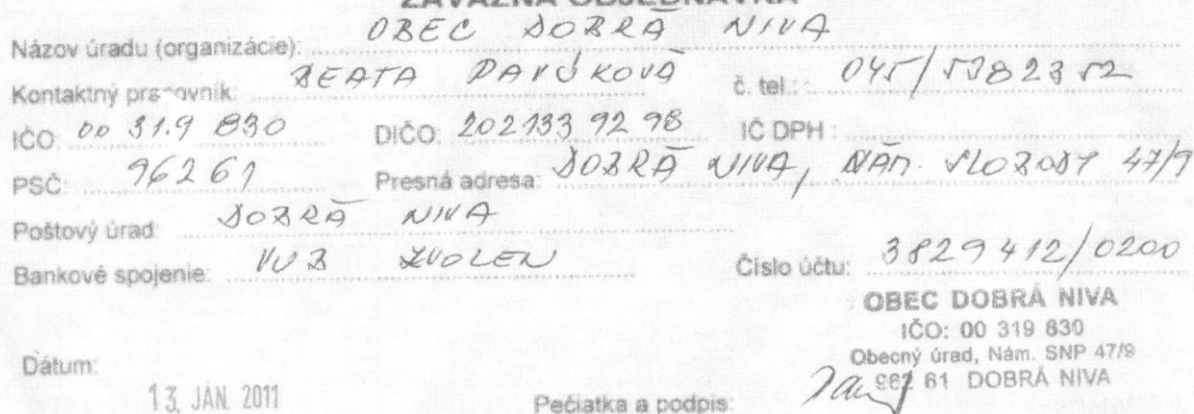 ZÁVÄZNÁ OBJEDNÁVKA
Názov úradu (organizácie): OBEC DOBRÁ NIVA
Kontaktný pracovník: BEATA PAVÚKOVÁ č. tel.: 045/5382352
IČO: 00 31.9 830 DIČO: 202133 92 98 IČ DPH :
PSČ: 962 61 Presná adresa: DOBRÁ NIVA, NÁM. SLOBODY 47/9
Poštový úrad: DOBRÁ NIVA
Bankové spojenie: VUB ZVOLEN Číslo účtu: 3829412/0200
OBEC DOBRÁ NIVA
IČO: 00 319 830
Obecný úrad, Nám. SNP 47/9
962 61 DOBRÁ NIVA
Dátum:
13. JÁN. 2011 Pečiatka a podpis: